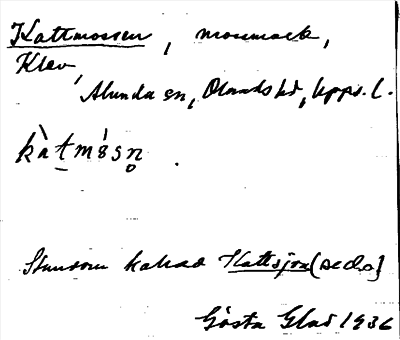 Kattmossen, mosmark,
Klev,
Alunda sn, Olands hd, Upps. l.
kàtmósn.
Stundom kallad Kattsjön (se d.o)
Gösta Glad 1936